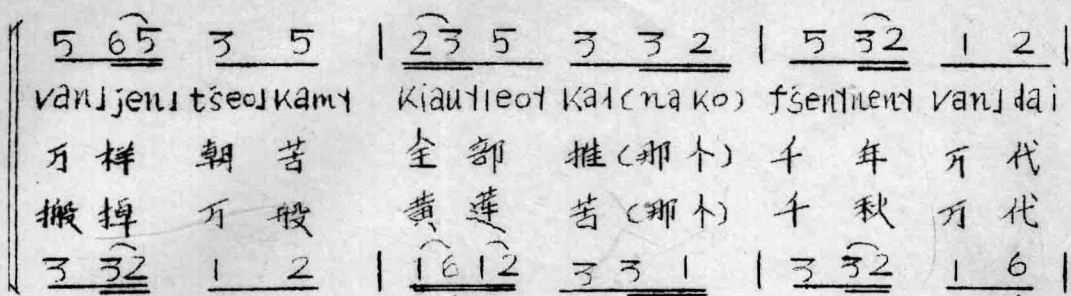 5 65 3 5 | 23 5 3 3 2 | 5 32 1 2 |
van˩jen˩ tseo˩kam˧ kiau˧leo˧ ka˧(na ko) tsen˧nen˧ van˩dai
万样 朝苦 全部 推(那个) 千年 万代
搬掉 万般 黄莲 苦(那个) 千秋 万代
3 32 1 2 | 16 12 3 3 1 | 3 32 1 6 |